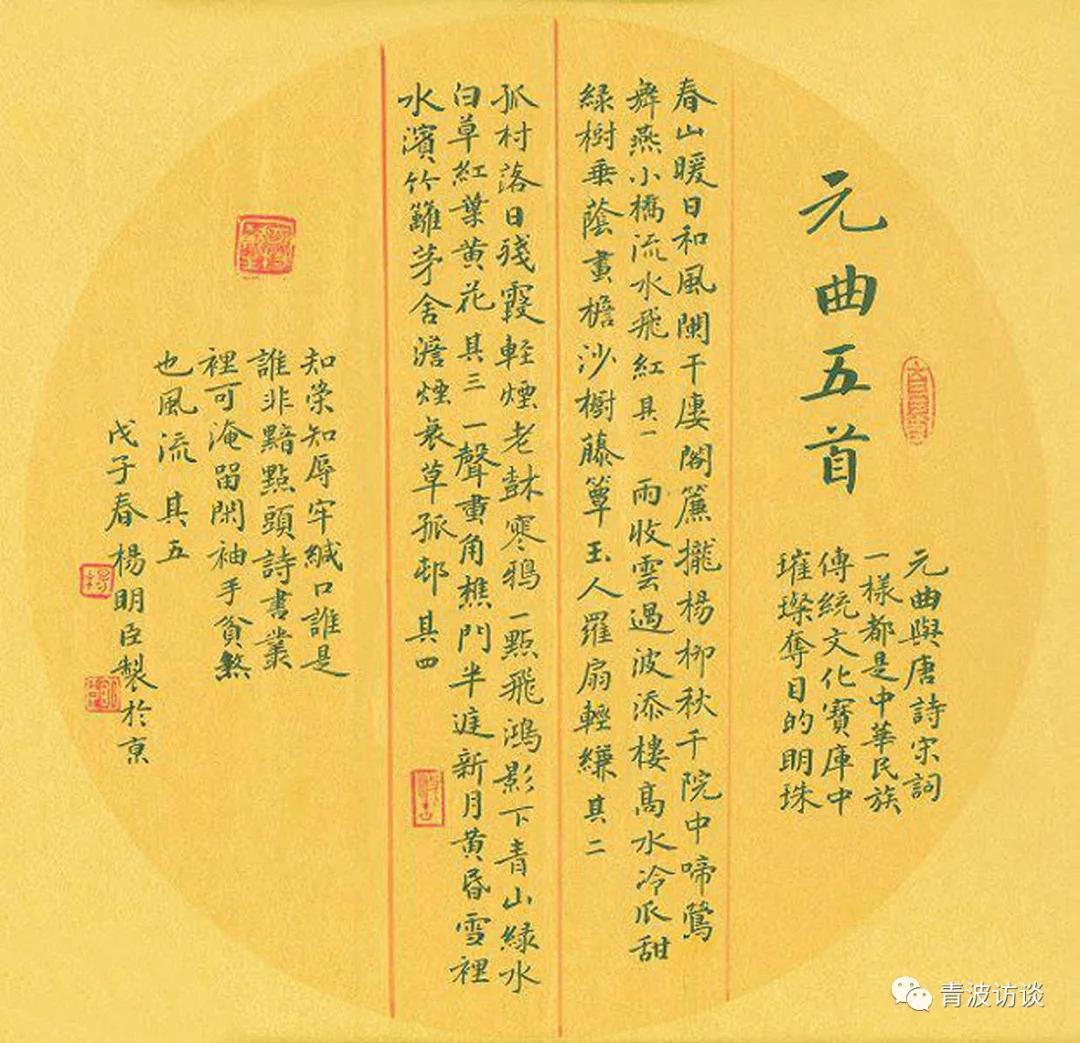 元曲五首
元曲與唐詩宋詞
一樣都是中華民族
傳統文化寶庫中
璀璨奪目的明珠
春山暖日和風闌干廔閣簾攏楊柳秋千院中啼鶯
舞燕小橋流水飛紅 其一 雨收雲過波添樓高水冷瓜甜
綠樹垂蔭畫檐沙櫥藤簟玉人羅扇輕縑 其二
孤村落日殘霞輕煙老尌寒鴉一點飛鴻影下青山綠水
白草紅葉黃花 其三 一聲畫角樵門半庭新月黃昏雪裡
水濱竹籬茅舍澹煙衰草孤邨 其四
知榮知辱牢緘口誰是
誰非黯點頭詩書叢
裡可淹留閑袖手貧煞
也風流 其五
戊子春楊明臣製於京
楊
青波访谈